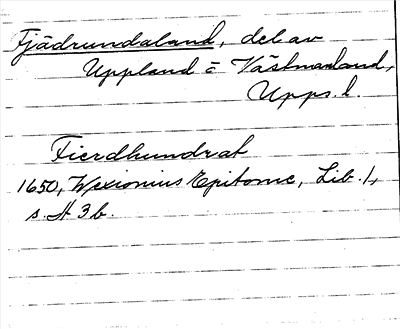 Fjädrundaland, del av
Uppland o Västmanland,
Upps. l.
Fierdhundrat
1650, Wexionius Epitome, Lib. 1,
s. H 3 b.